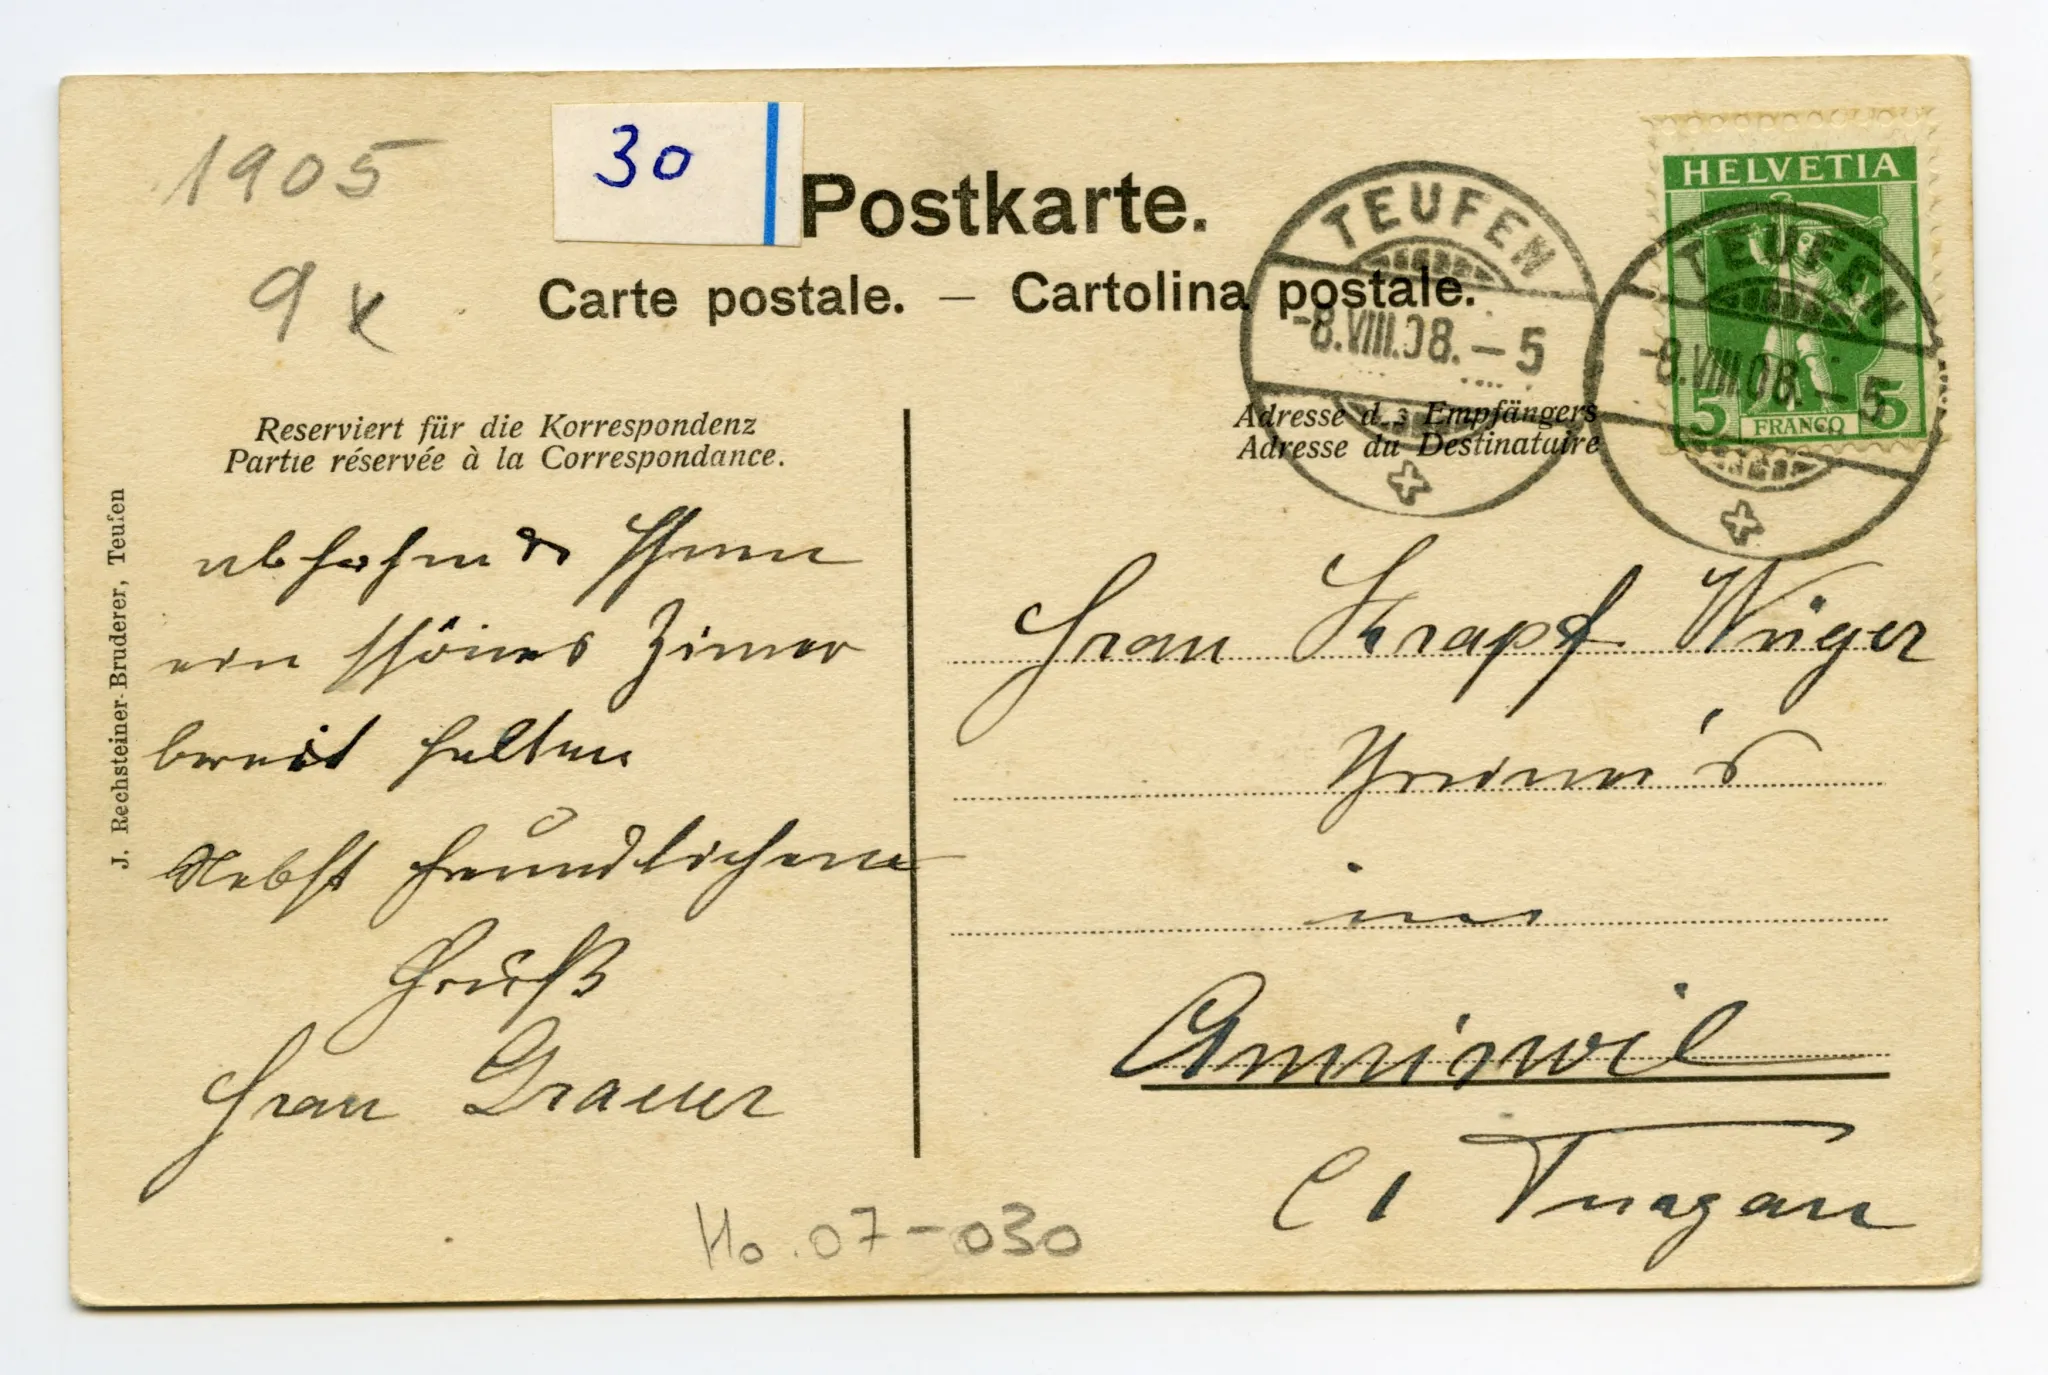 1905
9 x
30
Postkarte.
Carte postale. — Cartolina postale.
TEUFEN
-8.VIII.08.-5
TEUFEN
-8.VIII.08.-5
HELVETIA
5 FRANCO 5
Reserviert für die Korrespondenz
Partie réservée à la Correspondance.
Adresse des Empfängers
Adresse du Destinataire
J. Rechsteiner-Bruderer, Teufen
abholen & Ihnen
ein schönes Zimmer
bereit halten
Nebst freundlichem
Gruß
Frau Graeser
Frau Krapf Wüger
in
Amriswil
Ct Turgau
Ho. 07-030